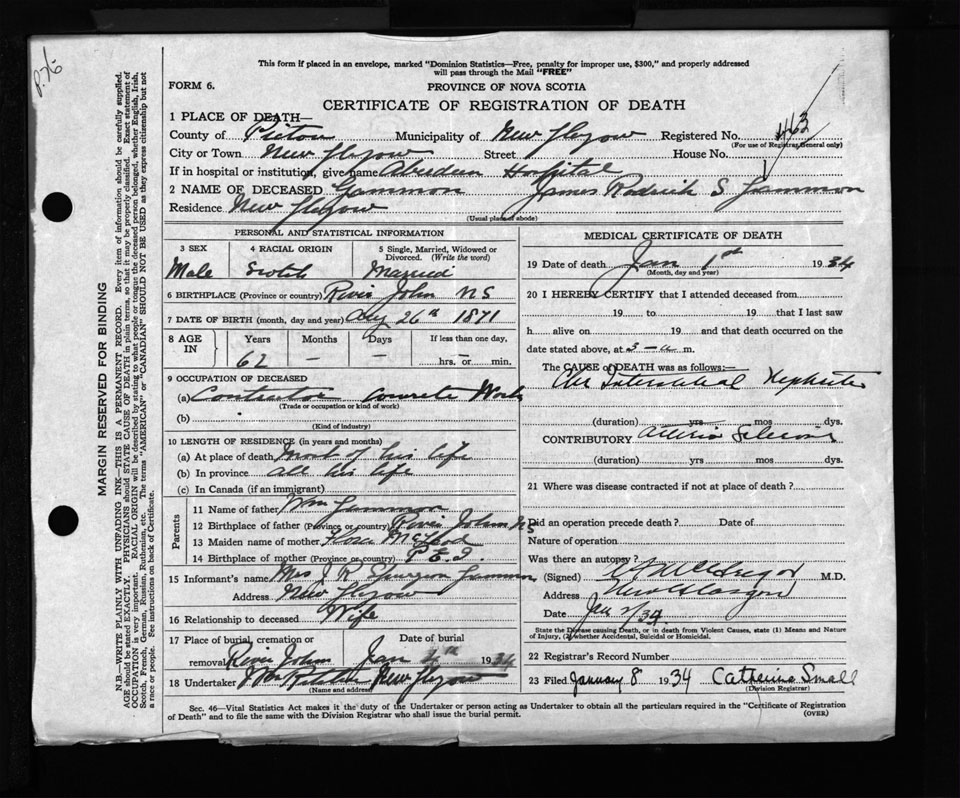 This form if placed in an envelope, marked "Dominion Statistics—Free, penalty for improper use, $300," and properly addressed
will pass through the Mail "FREE"
FORM 6.
PROVINCE OF NOVA SCOTIA
CERTIFICATE OF REGISTRATION OF DEATH
1 PLACE OF DEATH—
County of Pictou Municipality of New Glasgow Registered No. 463
(For use of Registrar General only)
City or Town New Glasgow Street House No.
If in hospital or institution, give name Aberdeen Hospital
2 NAME OF DECEASED Gammon James Roderick S. Gammon
Residence New Glasgow
(Usual place of abode)
PERSONAL AND STATISTICAL INFORMATION
3 SEX 4 RACIAL ORIGIN 5 Single, Married, Widowed or
Divorced. (Write the word)
Male Scotch Married
6 BIRTHPLACE (Province or country) River John N S
7 DATE OF BIRTH (month, day and year) 26th 1871
8 AGE IN Years Months Days If less than one day,
62 – – hrs. or min.
9 OCCUPATION OF DECEASED
(a) Contractor Concrete Work
(Trade or occupation or kind of work)
(b)
(Kind of industry)
10 LENGTH OF RESIDENCE (in years and months)
(a) At place of death Most of his life
(b) In province All his life
(c) In Canada (if an immigrant)
Parents
11 Name of father Wm Gammon
12 Birthplace of father (Province or country) River John NS
13 Maiden name of mother Flora McLeod
14 Birthplace of mother (Province or country) P.E.I.
15 Informant's name Mrs J R Spurgeon Gammon
Address New Glasgow
16 Relationship to deceased Wife
17 Place of burial, cremation or Date of burial
removal River John Jan 4th 1934
18 Undertaker New Glasgow
(Name and address)
MEDICAL CERTIFICATE OF DEATH
19 Date of death Jan 1st 1934
(Month, day and year)
20 I HEREBY CERTIFY that I attended deceased from
19 to 19 that I last saw
h alive on 19 and that death occurred on
date stated above, at 3-a m.
The CAUSE of DEATH was as follows:—
Chr Interstitial Nephritis
(duration) yrs mos dys.
CONTRIBUTORY Arterio Sclerosis
(duration) yrs mos dys.
21 Where was disease contracted if not at place of death?
Did an operation precede death? Date of
Nature of operation
Was there an autopsy?
(Signed) M.D.
Address New Glasgow
Date Jan 2/34
State the Disease causing Death, or in death from Violent Causes, state (1) Means and Nature
of Injury, (2) whether Accidental, Suicidal or Homicidal.
22 Registrar's Record Number
23 Filed January 8 1934 Catherine Small
(Division Registrar)
Sec. 46—Vital Statistics Act makes it the duty of the Undertaker or person acting as Undertaker to obtain all the particulars required in the "Certificate of Registration
of Death" and to file the same with the Division Registrar who shall issue the burial permit.
(OVER)
MARGIN RESERVED FOR BINDING
N.B.—WRITE PLAINLY WITH UNFADING INK—THIS IS A PERMANENT RECORD. Every item of information should be carefully supplied.
AGE should be stated EXACTLY. PHYSICIANS should STATE CAUSE OF DEATH in plain terms, so that it may be properly classified. Exact statement of
OCCUPATION is very important. RACIAL ORIGIN will be described by stating to what people or tongue the deceased person belonged, whether English, Irish,
Scotch, French, German, Russian, Ruthenian, etc. The terms "AMERICAN" or "CANADIAN" SHOULD NOT BE USED as they express citizenship but not
a race or people. See instructions on back of Certificate.